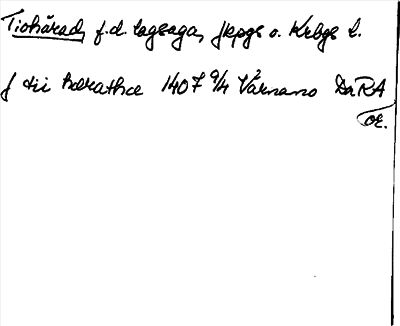 Tiohärad, f.d. lagsaga, Jkpgs o. Krbgs l.
j tii hærathæ 1407 9/4 Värnamo DaRA
or.